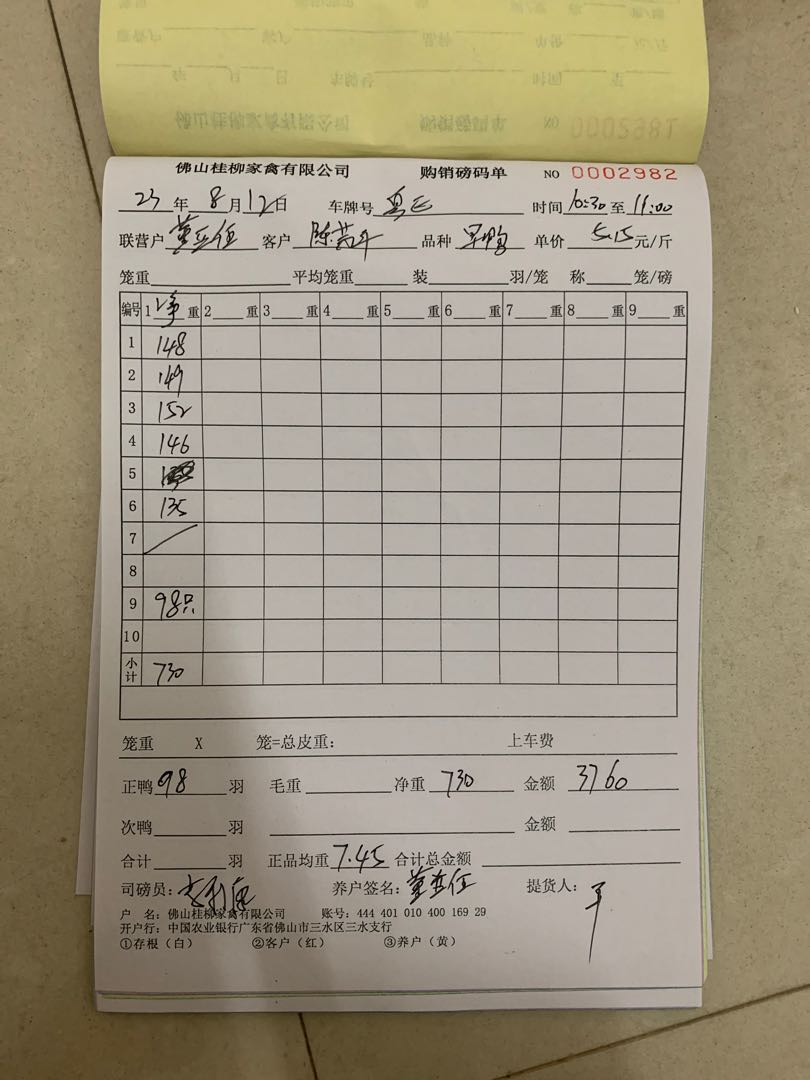 佛山桂柳家禽有限公司 购销磅码单 NO 0002982
23年8月12日 车牌号 时间10:30至11:00
联营户 客户 陈 品种 单价5.15元/斤
笼重 平均笼重 装 羽/笼 称 笼/磅
编号 1净重 2 重 3 重 4 重 5 重 6 重 7 重 8 重 9 重
1 148
2 149
3 152
4 146
5
6 135
7
8
9 98只
10
小计 730
笼重 X 笼=总皮重: 上车费
正鸭98羽 毛重 净重730 金额3760
次鸭 羽 金额
合计 羽 正品均重7.45 合计总金额
司磅员: 养户签名: 提货人:
户 名: 佛山桂柳家禽有限公司 账号: 444 401 010 400 169 29
开户行: 中国农业银行广东省佛山市三水区三水支行
①存根(白) ②客户(红) ③养户(黄)